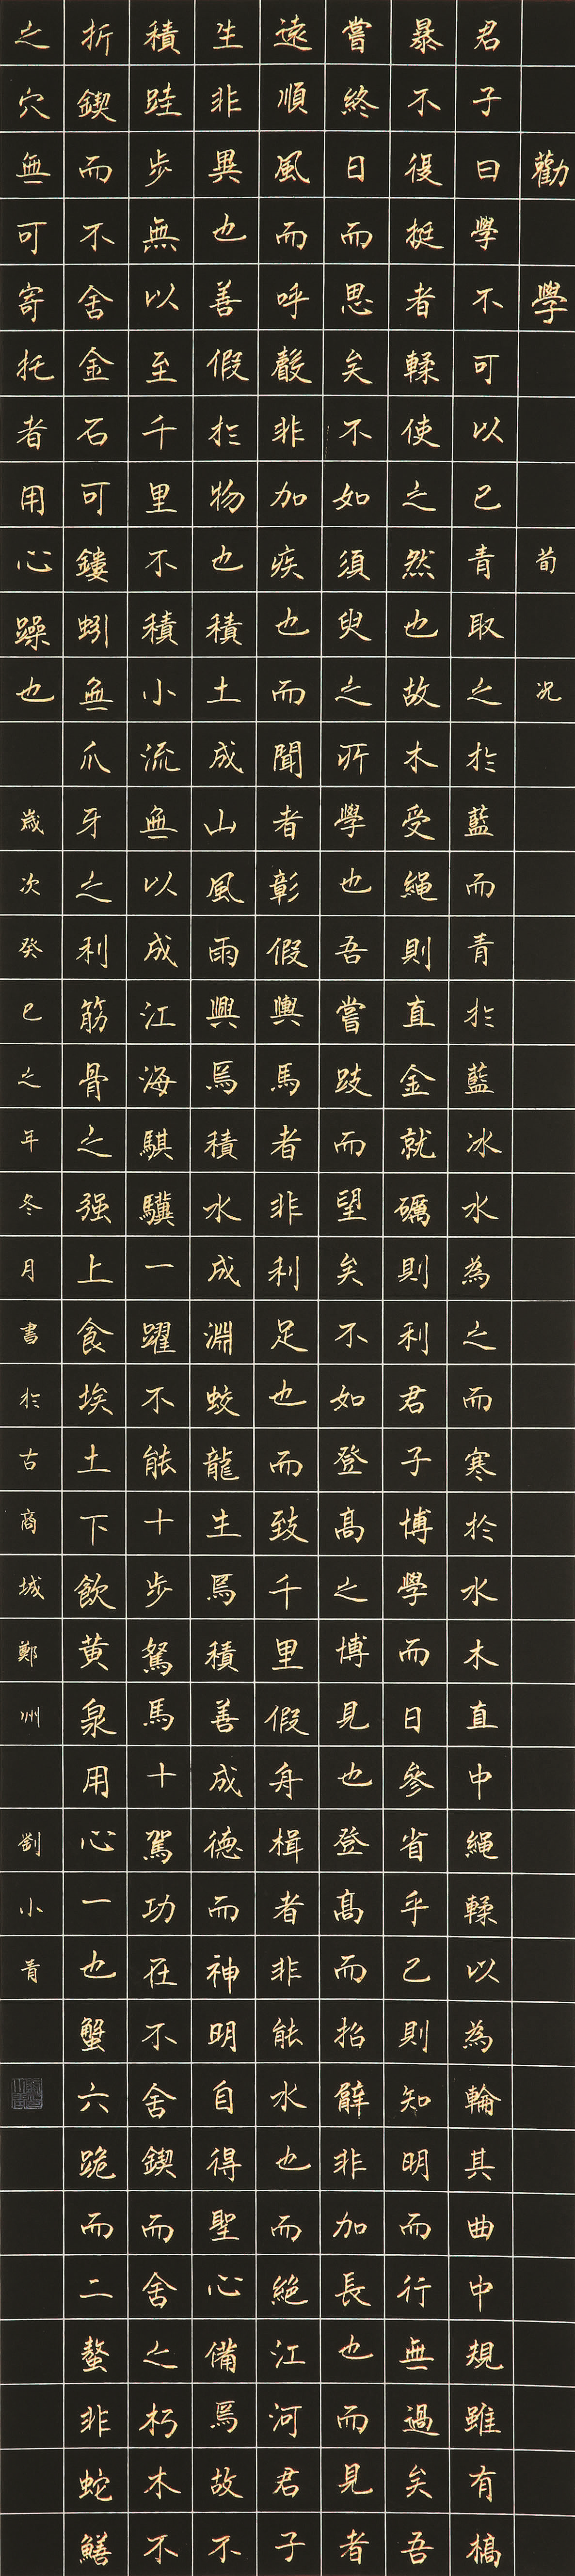 勸學 荀况
君子曰學不可以已青取之於藍而青於藍冰水為之而寒於水木直中繩輮以為輪其曲中規雖有槁
暴不復挺者輮使之然也故木受繩則直金就礪則利君子博學而日參省乎己則知明而行無過矣吾
嘗終日而思矣不如須臾之所學也吾嘗跂而望矣不如登高之博見也登高而招臂非加長也而見者
遠順風而呼聲非加疾也而聞者彰假輿馬者非利足也而致千里假舟楫者非能水也而絕江河君子
生非異也善假於物也積土成山風雨興焉積水成淵蛟龍生焉積善成德而神明自得聖心備焉故不
積跬步無以至千里不積小流無以成江海騏驥一躍不能十步駑馬十駕功在不舍鍥而舍之朽木不
折鍥而不舍金石可鏤蚓無爪牙之利筋骨之强上食埃土下飲黄泉用心一也蟹六跪而二螯非蛇鱔
之穴無可寄托者用心躁也 歲次癸巳之年冬月書於古商城鄭州 劉小青